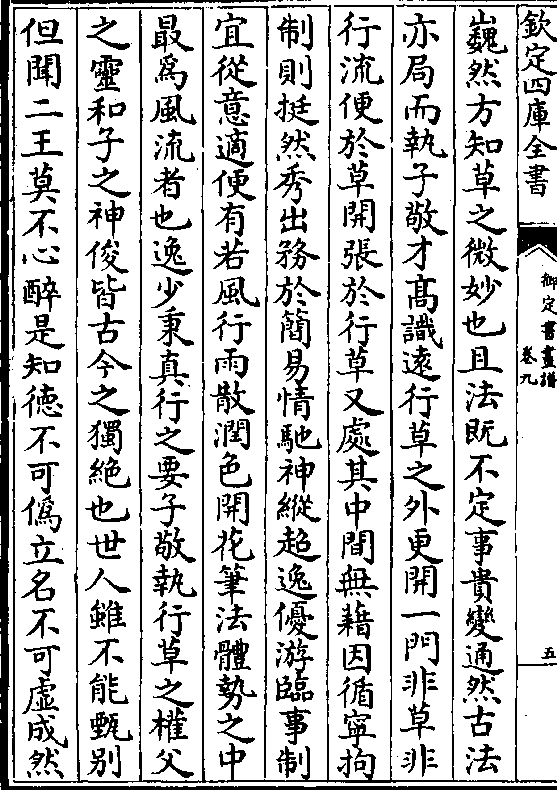 欽定四庫全書
御定書畫譜
卷九
五
巍然方知草之微妙也且法既不定事貴變通然古法
亦局而執子敬才髙識遠行草之外更開一門非草非
行流便於草開張於行草又處其中間無藉因循寧拘
制則挺然秀出務於簡易情馳神縱超逸優游臨事制
宜從意適便有若風行雨散潤色開花筆法體勢之中
最為風流者也逸少秉真行之要子敬執行草之權父
之靈和子之神俊皆古今之獨絶也世人雖不能甄别
但聞二王莫不心醉是知德不可偽立名不可虚成然